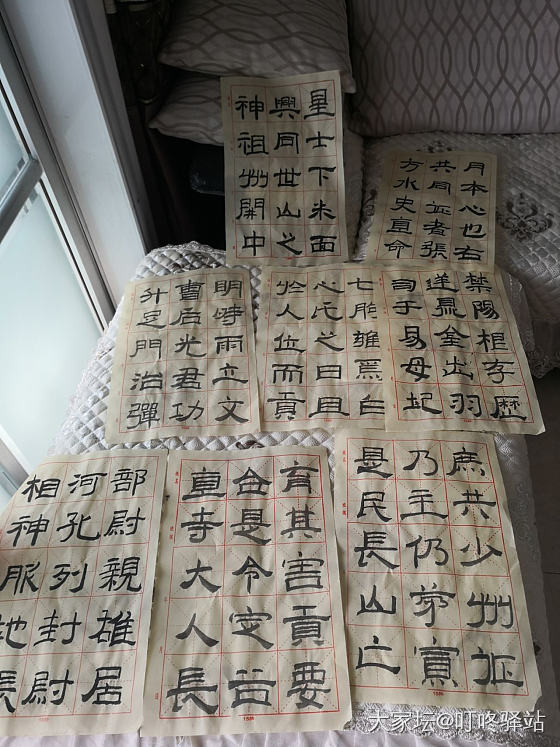 星士下米面
興同世山之
神祖州開中
月本心也右
共同者張
方水史直命
明時雨立文
書后光君功
升定門治彈
七雖焉白
心氏之日且
人位而貢
禁陽相存歷
遂全出羽
司于易母
部尉親雄居
河孔列封尉
相神服地長
育其害貢要
金是令定益
直寺大人長
庶共少州征
乃主仍賓
是民長山亡
大家坛@叮咚驿站